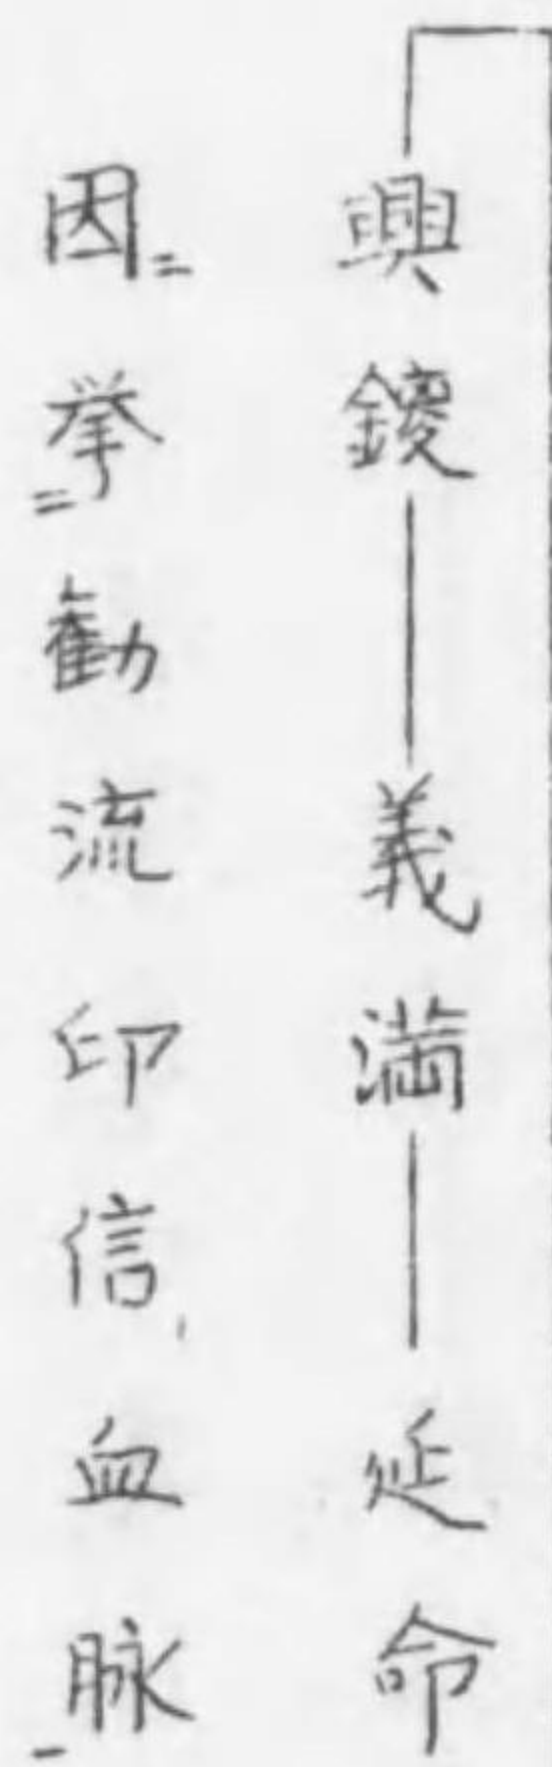 興鑁―義満―延命
因_二挙_二勧流印信血脉_一